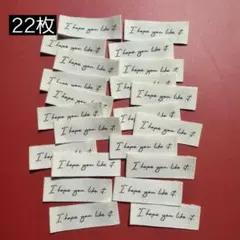 22枚
I hope you like it.
I hope you like it.
I hope you like it.
I hope you like it.
I hope you like it.
I hope you like it.
I hope you like it.
I hope you like it.
I hope you like it.
I hope you like it.
I hope you like it.
I hope you like it.
I hope you like it.
I hope you like it.
I hope you like it.
I hope you like it.
I hope you like it.
I hope you like it.